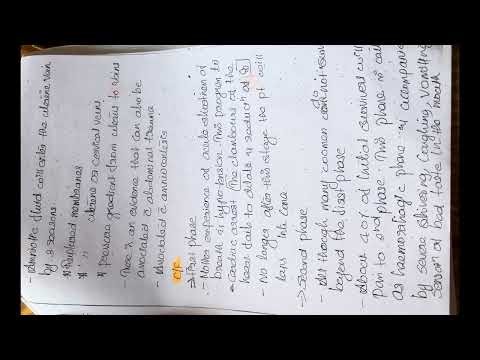 - Amniotic fluid enters the uterine vein
by 3 reasons.
* Ruptured membranes
* uterine or cervical veins
* pressure gradient from uterus to veins
- There is an evidence that can also be
associated c̄ abdominal trauma
- Associated c̄ amniocentesis
c/p
→ First phase
- Mother experience of acute shortness of
breath & hypotension. This progress to
Cardiac arrest. The chambers of the
heart fails to dilate & reduction of
- No longer after this stage the pt will
laps into Coma
→ Second phase
- Although many women do not survive
beyond the first phase
- About 40% of initial survival will
Pass to 2nd phase. This phase is
as haemorrhagic phase & accompanied
by severe shivering, Coughing, vomiting
sensation of bad taste in the mouth